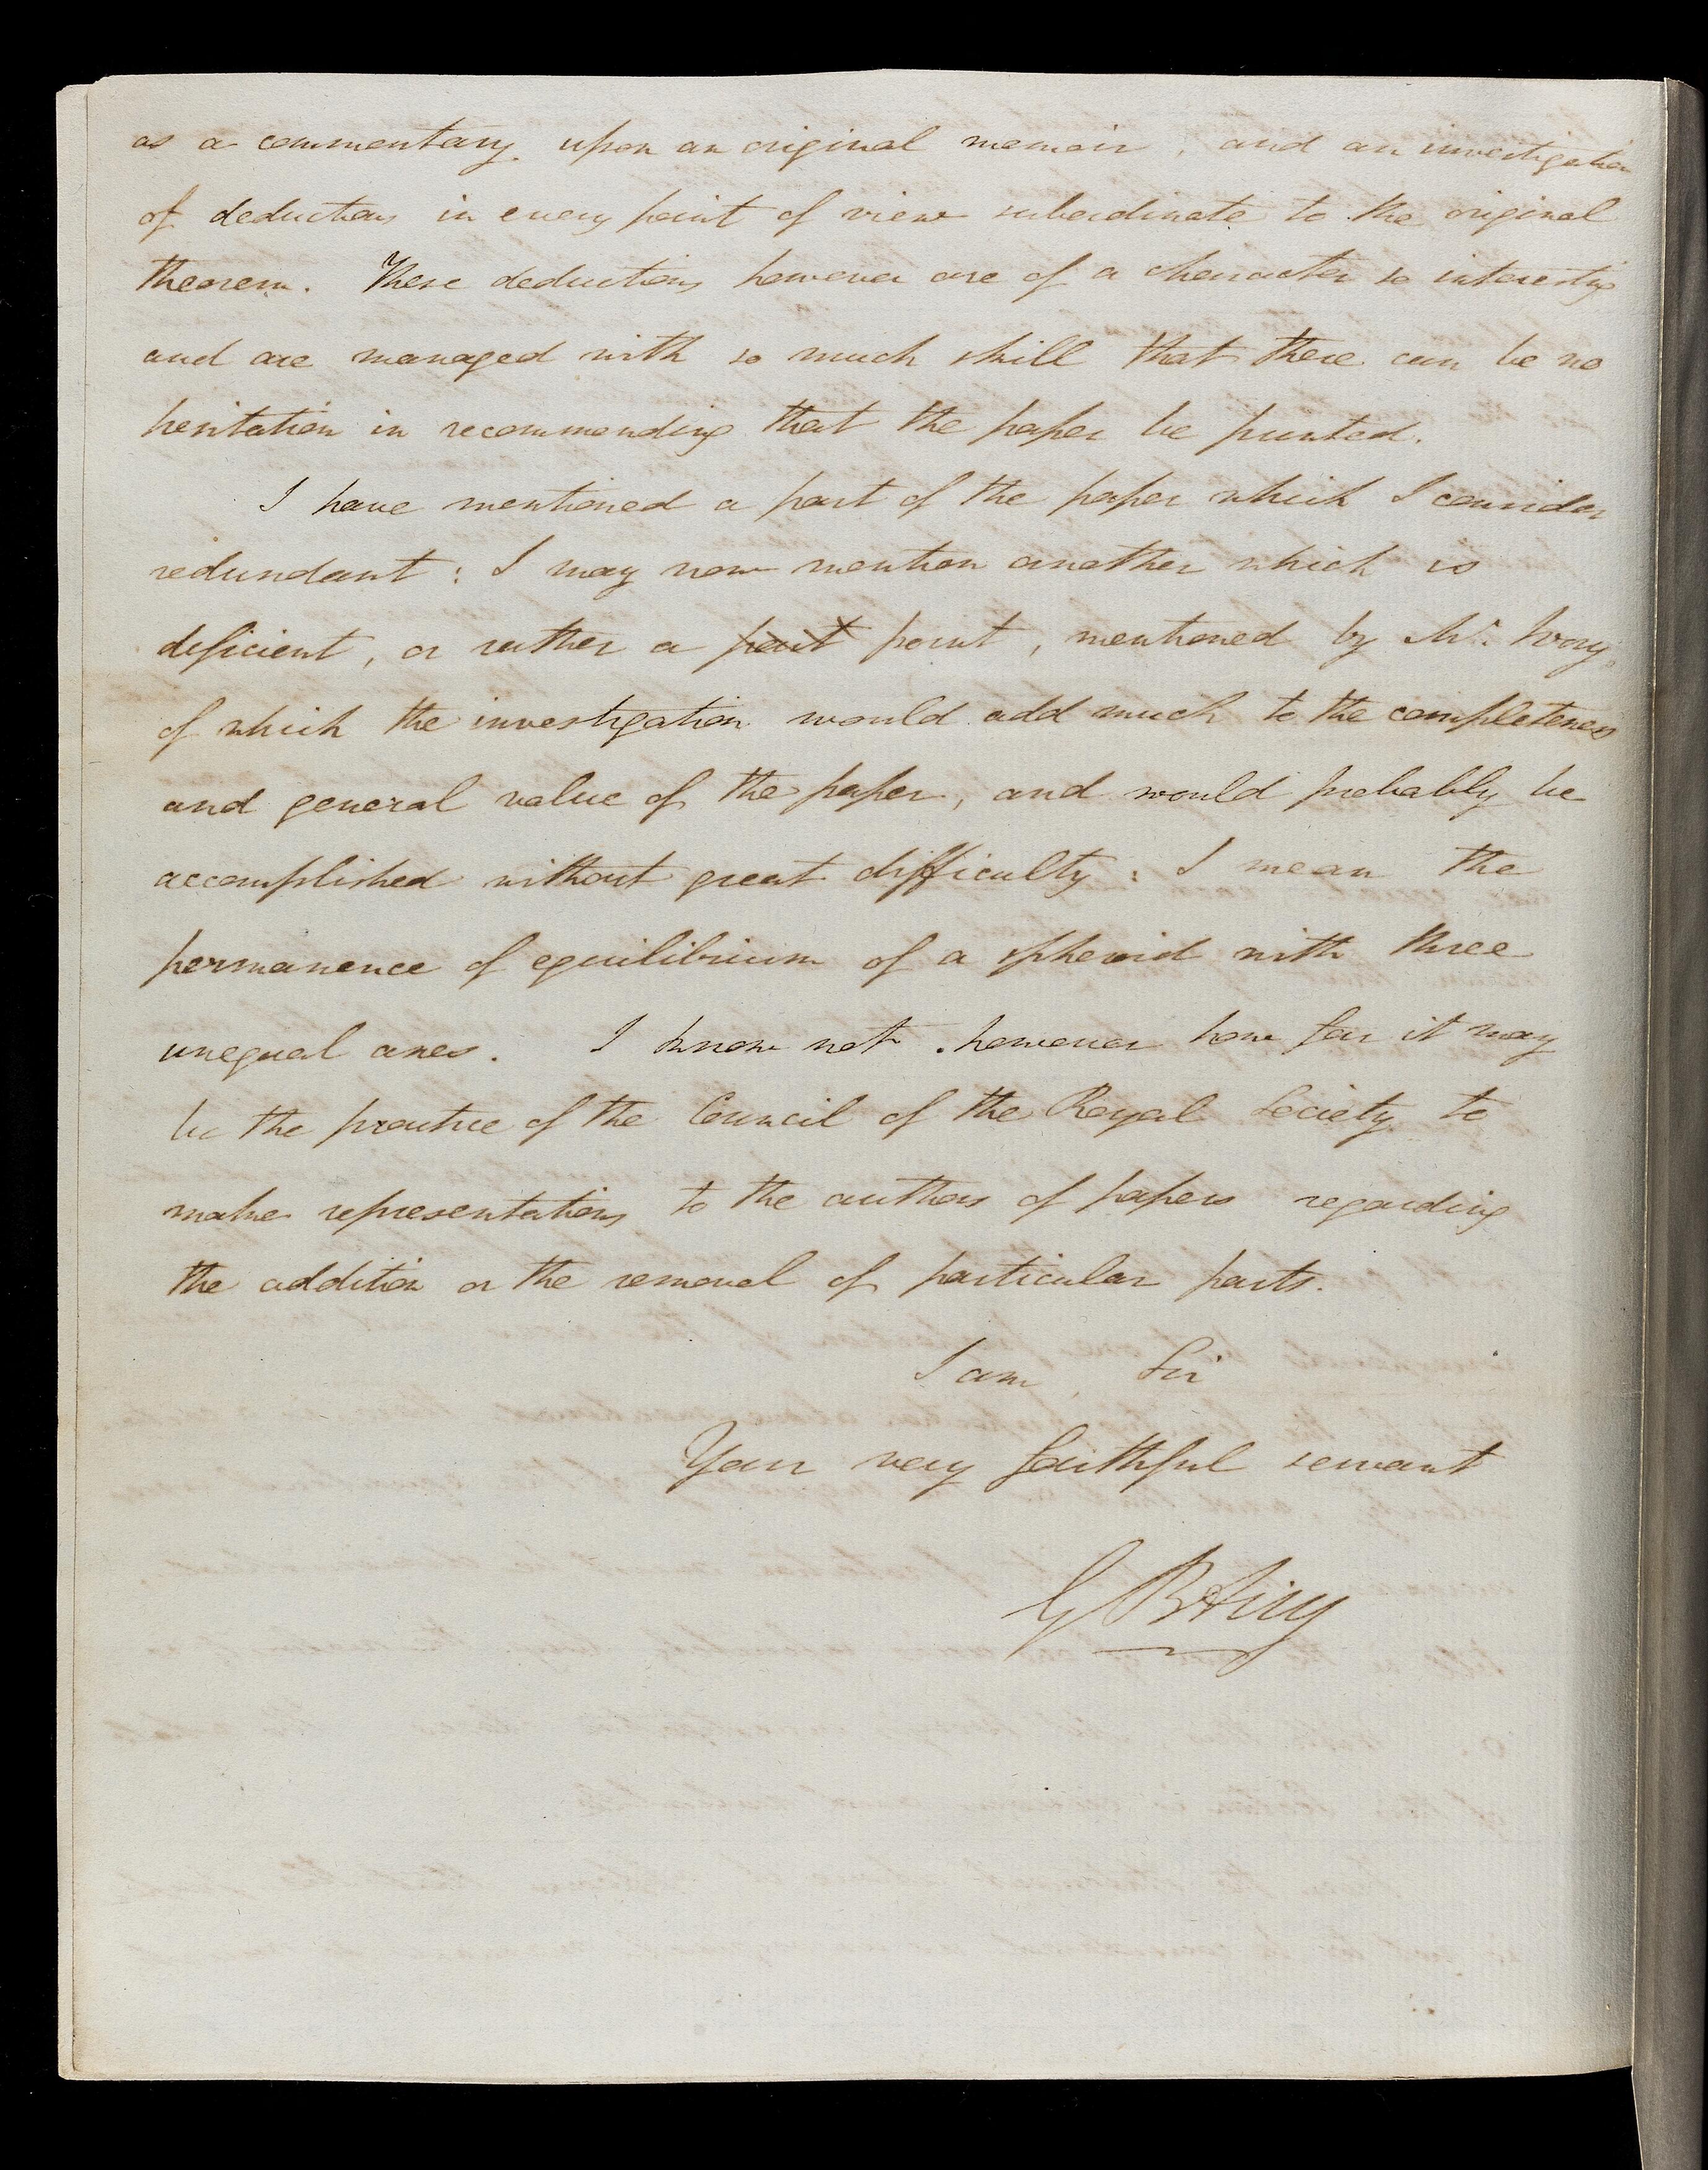 as a commentary upon an original memoir, and an investigation
of deductions in every point of view subordinate to the original
theorem. These deductions however are of a character so interesting
and are managed with so much skill that there can be no
hesitation in recommending that the paper be printed.
I have mentioned a part of the paper which I consider
redundant: I may now mention another which is
deficient, or rather a part point, mentioned by Mr. Ivory,
of which the investigation would add much to the completeness
and general value of the paper, and would probably be
accomplished without great difficulty: I mean the
permanence of equilibrium of a spheroid with three
unequal axes. I know not however how far it may
be the practice of the Council of the Royal Society to
make representations to the authors of papers regarding
the addition or the removal of particular parts.
I am, Sir
Your very faithful servant
G B Airy